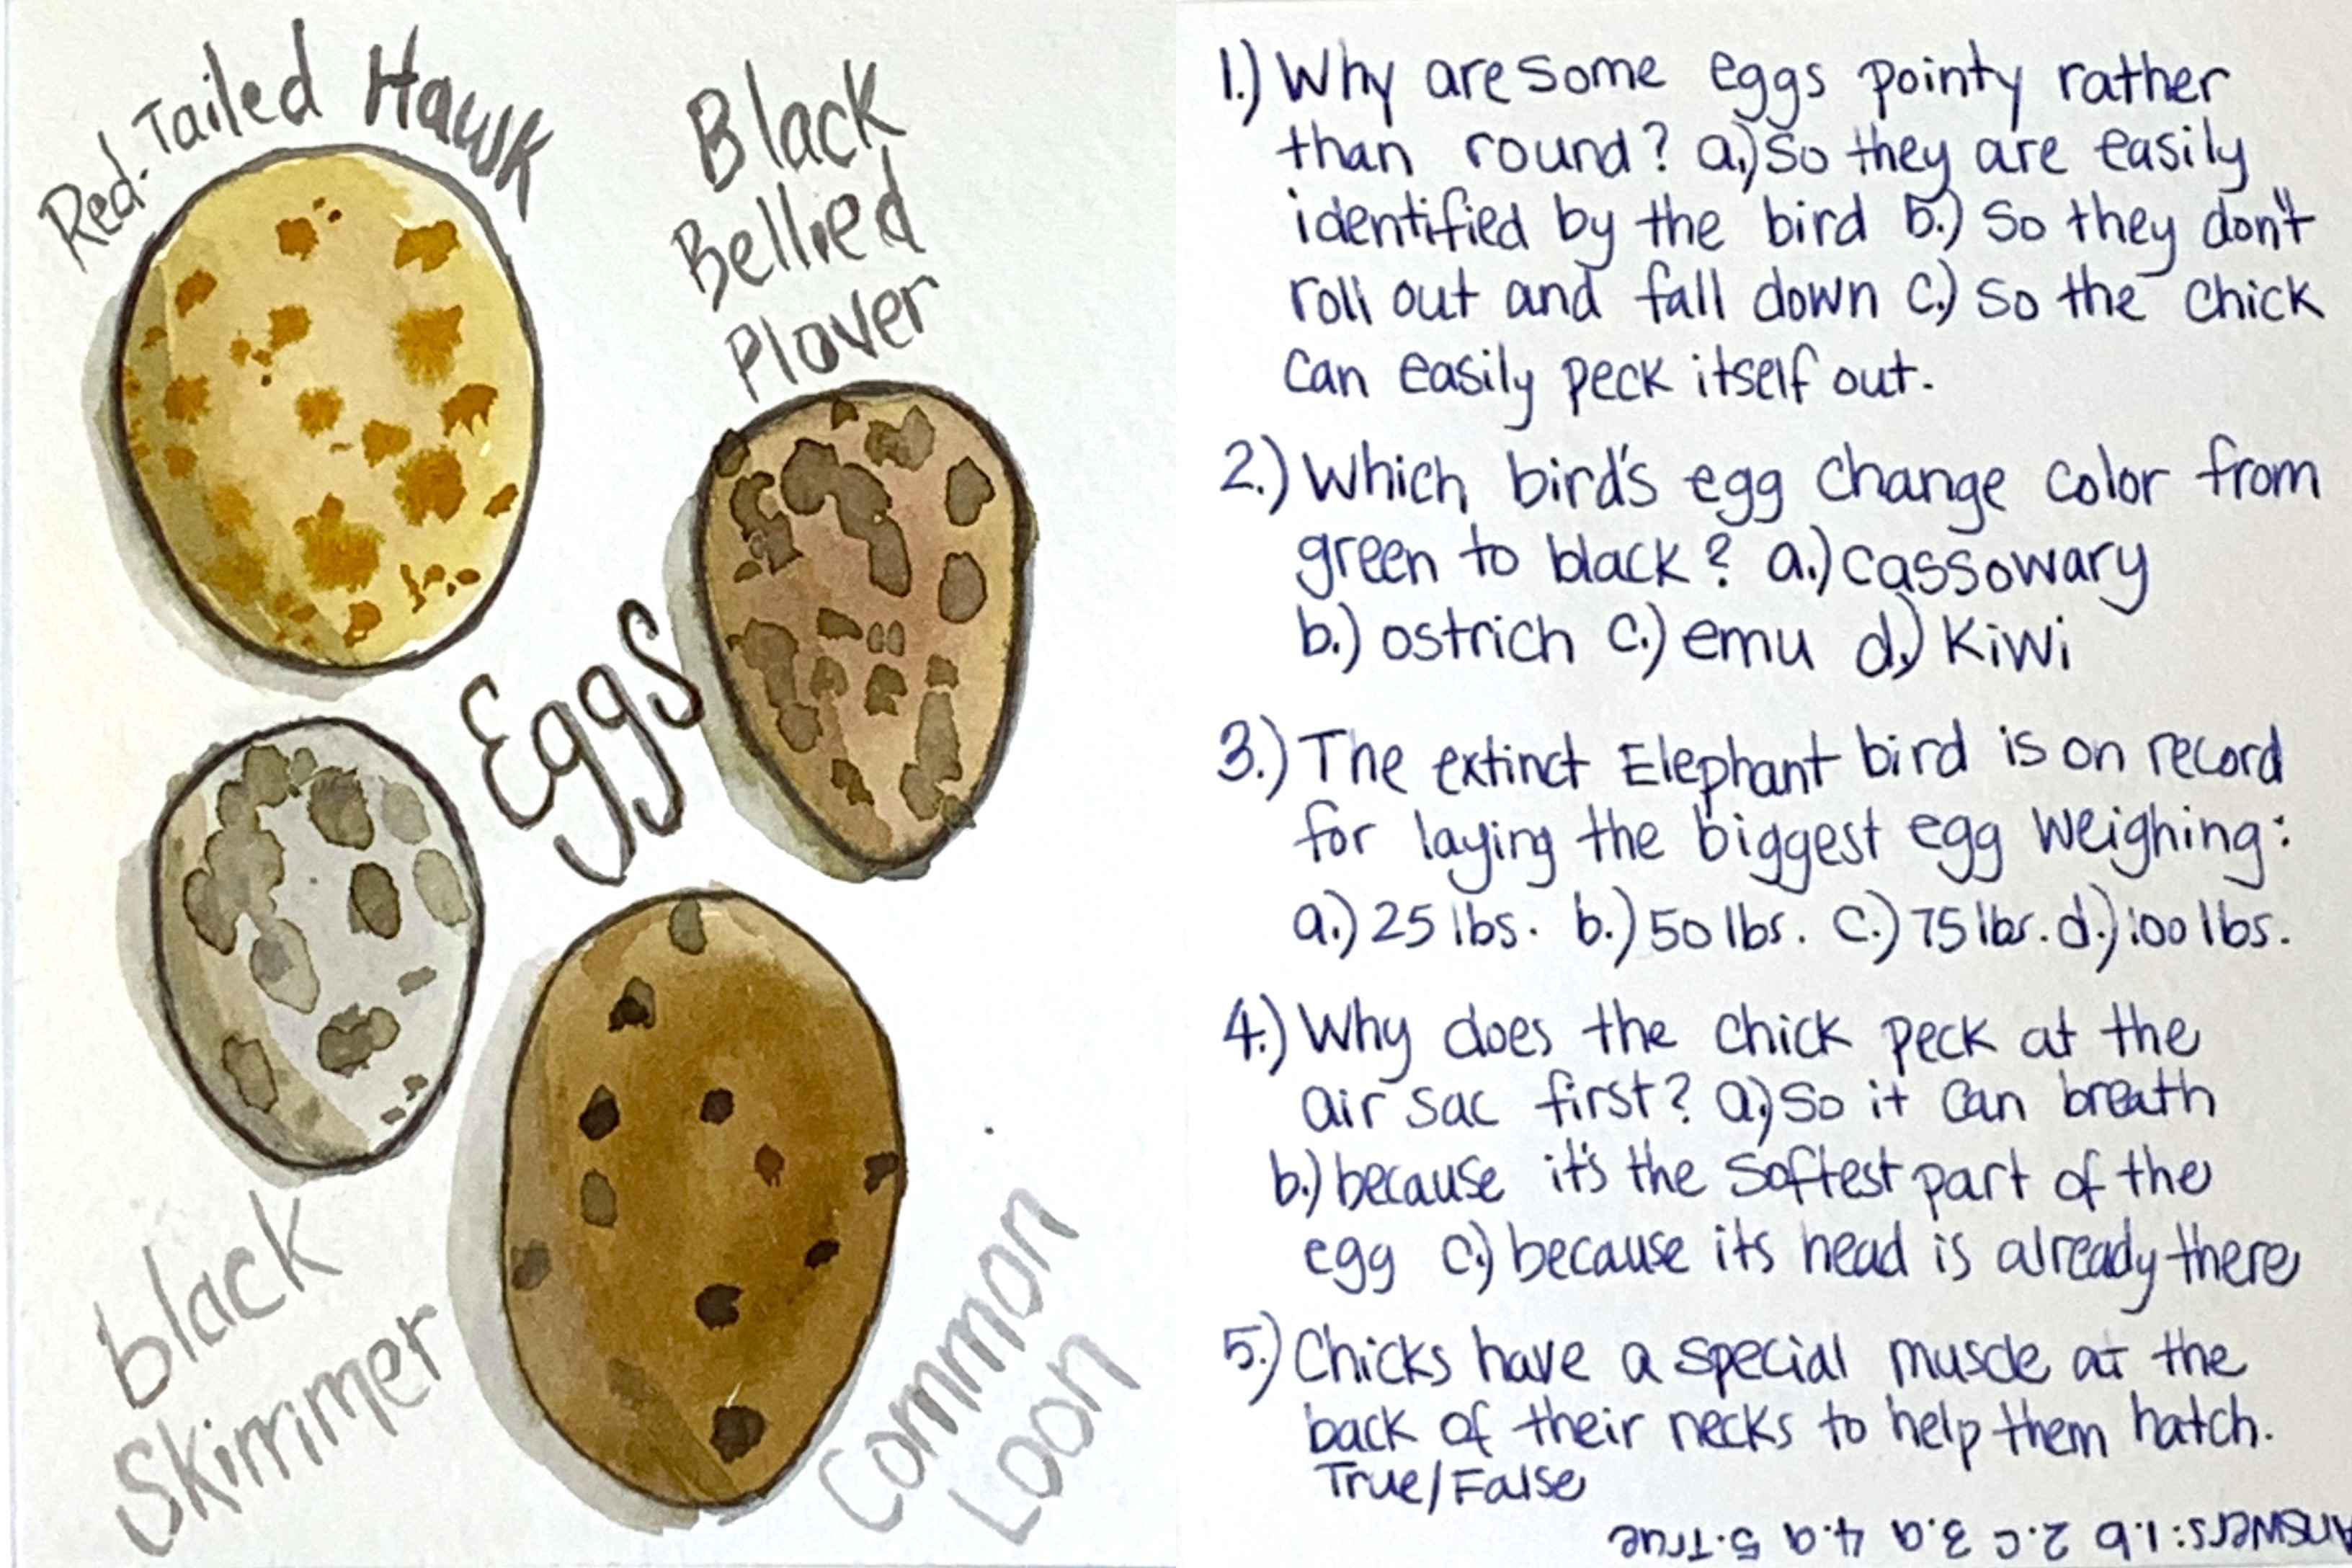 Red-Tailed Hawk
Black
Bellied
Plover
Eggs
black
Skimmer
Common
Loon
1.) Why are some eggs pointy rather
than round? a.) So they are easily
identified by the bird b.) So they don't
roll out and fall down c.) So the chick
can easily peck itself out.
2.) Which bird's egg change color from
green to black? a.) cassowary
b.) ostrich c.) emu d.) Kiwi
3.) The extinct Elephant bird is on record
for laying the biggest egg weighing:
a.) 25 lbs. b.) 50 lbs. c.) 75 lbs. d.) 100 lbs.
4.) Why does the chick peck at the
air sac first? a.) So it can breath
b.) because it's the softest part of the
egg c.) because its head is already there
5.) Chicks have a special muscle at the
back of their necks to help them hatch.
True/False
Answers: 1.b 2.c 3.a 4.a 5.True